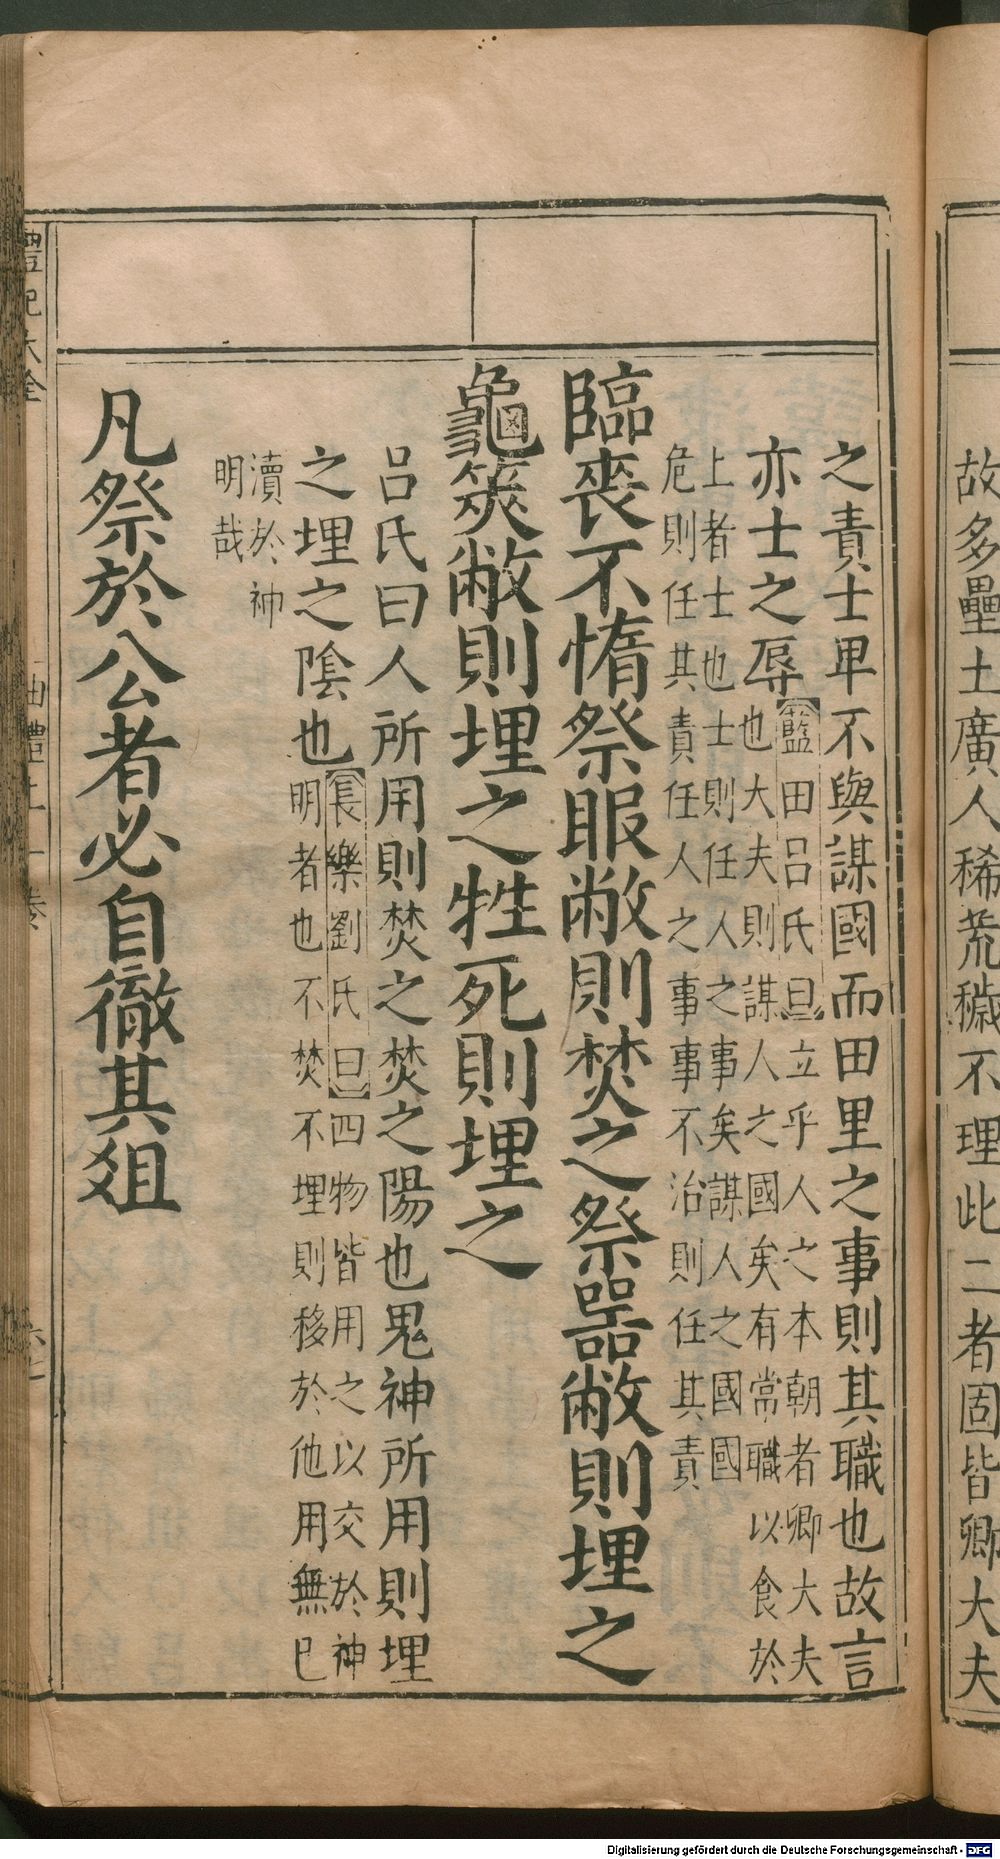 故多壘土廣人稀荒穢不理此二者固皆卿大夫
之責士卑不與謀國而田里之事則其職也故言
亦士之辱
藍田呂氏曰立乎人之本朝者卿大夫
也大夫則謀人之國矣有常職以食於
上者士也士則任人之事矣謀人之國國
危則任其責任人之事事不治則任其責
臨喪不惰祭服敝則焚之祭器敝則埋之
龜筴敝則埋之牲死則埋之
呂氏曰人所用則焚之焚之陽也鬼神所用則埋
之埋之陰也
長樂劉氏曰四物皆用之以交於神
明者也不焚不埋則移於他用無已
瀆於神
明哉
凡祭於公者必自徹其俎
禮記大全
曲禮上一卷
六十
Digitalisierung gefördert durch die Deutsche Forschungsgemeinschaft - DFG